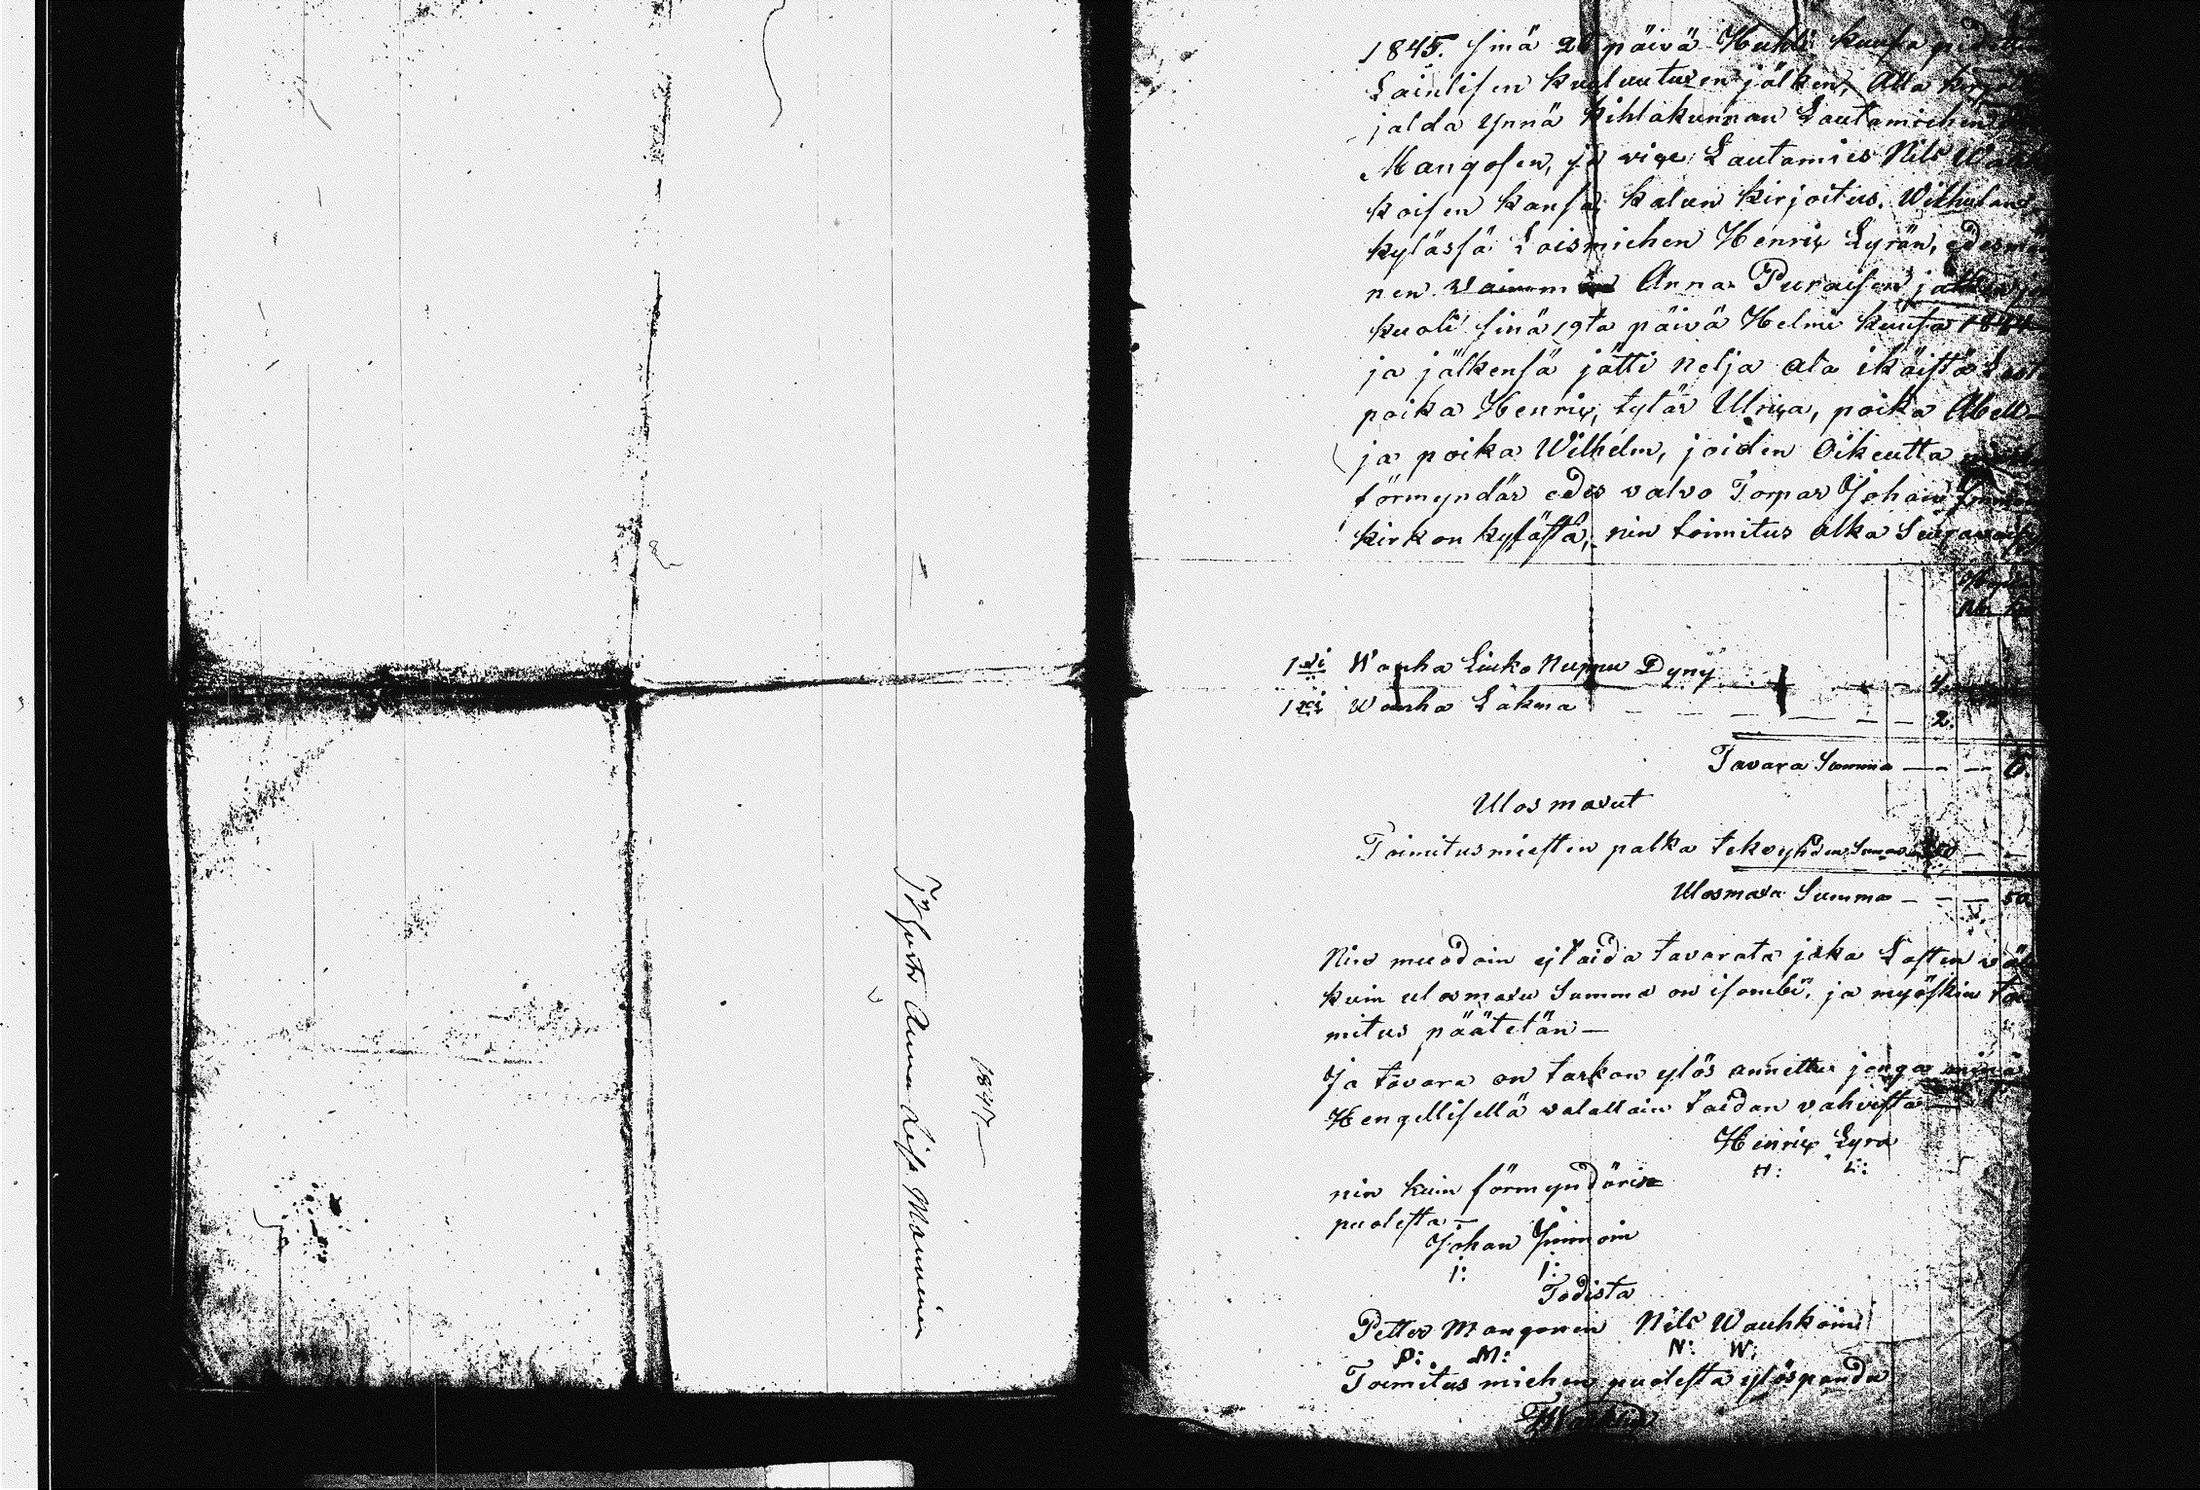 Anna Lisa Manninen
1847.—
1845. sinä päivä Huhti kuusa
Lailisen kuuluutuxen jälken, Alla
jalda ynnä kihlakunnan Lautamiehen
Mangosen, ja vice Lautamies Nils
koisen kansa, kalun kirjoitus,
kylässä Loismiehen Henrix Lyrän, edesmä
nen Anna Puraisen
kuoli sinä 19ta päivä Helmi kuusa 1844
ja jälkensä jätti neljä ala ikäistä
poika Henrix, tytär Ulrixa, poika Abell
ja poika Wilhelm, joiden Oikeutta
förmyndär edes valvo Torpar Johan
kirkon kylästä, nin toimitus alka
1xi Wanha Liuko Nuppu Dyny
1xi Wanha Lakana 2.
Tavara Summa — — — 6
Ulos maxut
Toimitusmiesten palka
Ulosmaxu Summa — — — 50
Nin muodoin ej taida tavarata jaka Lasten
kuin ulosmaxu Summa on isombi, ja myöskin toi
mitus päätetän —
Ja tavara on tarkan ylös annettu jonga minä
Hengellisellä valallain taidan vahvista —
Henrix Lyra
H: L:
nin kuin förmyndärin
puolesta —
Johan Immoin
I: I:
Todista
Petter Mangonen Nils Wauhkoin
P: M: N: W:
Toimitus miehen puolesta ylöspandu